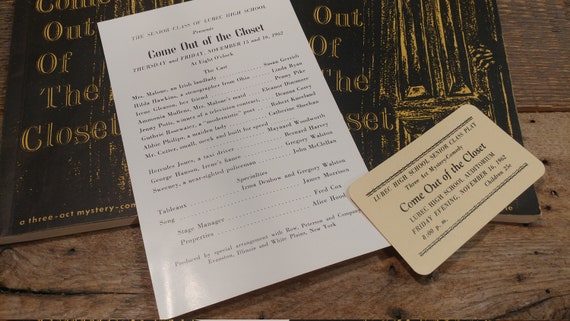 Come
Out
Of
The
Closet
a three-act mystery-com
THE SENIOR CLASS OF LUBEC HIGH SCHOOL
Presents
Come Out of the Closet
THURSDAY and FRIDAY, NOVEMBER 15 and 16, 1962
At Eight O'clock
The Cast
Mrs. Malone, an Irish landlady Susan Gerrish
Hilda Hawkins, a stenographer from Ohio Linda Ryan
Irene Gleason, her friend Penny Pike
Amnonia Moffett, Mrs. Malone's maid Eleanor Dinsmore
Jenny Potts, winner of a television contract Deanna Carey
Guthrie Rosewater, a "modernistic" poet Robert Kneeland
Abbie Philips, a maiden lady Catherine Sheehan
Mr. Cutter, small, meek and built for speed
Maynard Woodworth
Hercules Jones, a taxi driver Bernard Harvey
George Hanson, Irene's fiance Gregory Walston
Sweeney, a near-sighted policeman John McClellan
Specialties
Tableaux Irene Denbow and Gregory Walston
Song James Morrison
Stage Manager Fred Cox
Properties Alice Hand
Produced by special arrangement with Row, Peterson and Company,
Evanston, Illinois and White Plains, New York
Out
Of
The
Closet
LUBEC HIGH SCHOOL SENIOR CLASS PLAY
Three Act Mystery-Comedy
Come Out of the Closet
LUBEC HIGH SCHOOL AUDITORIUM
FRIDAY EVENING, NOVEMBER 16, 1962
8:00 p. m. Children 35c